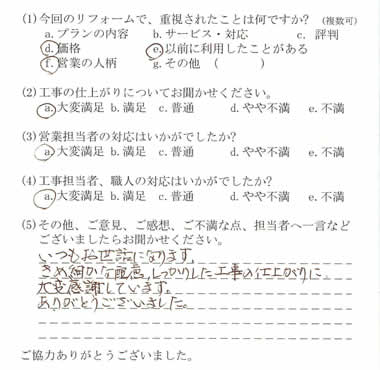 (1)今回のリフォームで、重視されたことは何ですか? (複数可)
a.プランの内容 b.サービス・対応 c. 評判
d.価格 e.以前に利用したことがある
f.営業の人柄 g.その他 ( )
(2)工事の仕上がりについてお聞かせください。
a.大変満足 b.満足 c.普通 d.やや不満 e.不満
(3)営業担当者の対応はいかがでしたか?
a.大変満足 b.満足 c.普通 d.やや不満 e.不満
(4)工事担当者、職人の対応はいかがでしたか?
a.大変満足 b.満足 c.普通 d.やや不満 e.不満
(5)その他、ご意見、ご感想、ご不満な点、担当者へ一言など
ございましたらお聞かせください。
いつもお世話になります。
きめ細かな配慮、しっかりした工事の仕上がりに、
大変感謝しています。
ありがとうございました。
ご協力ありがとうございました。